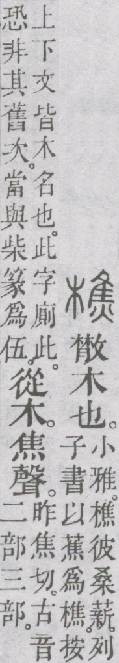 樵
㪚木也。
小雅。樵彼桑薪。列
子書以蕉爲樵。按
上下文皆木名也。此字廁此。
恐非其舊次。當與柴篆爲伍。
從木。焦聲。
昨焦切。古音
二部三部。